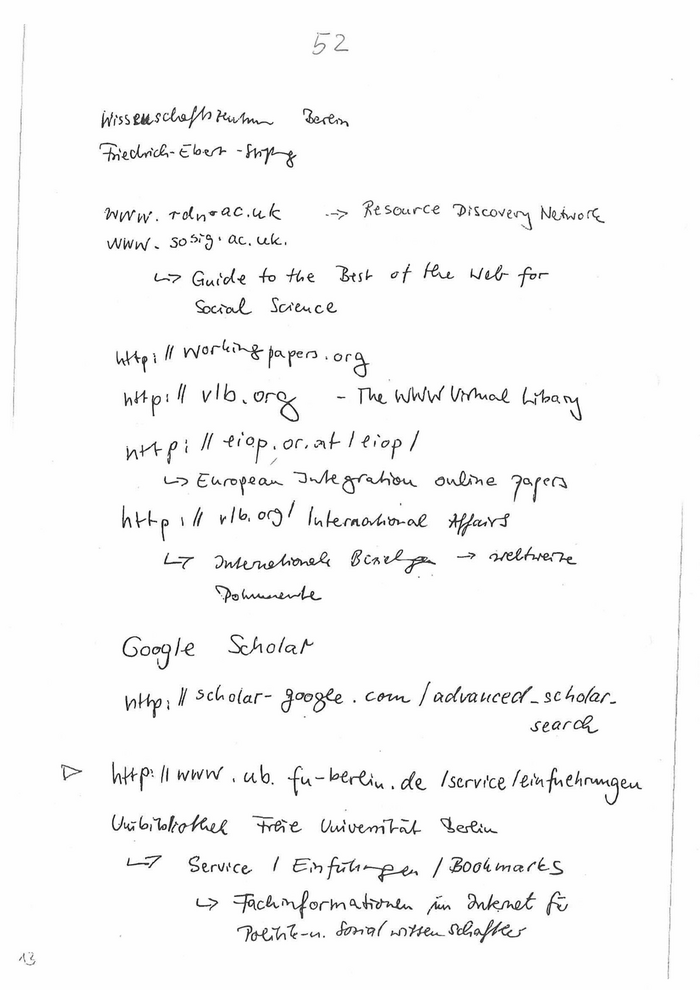 52
Wissenschaftszentrum Berlin
Friedrich-Ebert-Stiftung
www.rdn.ac.uk -> Resource Discovery Network
www.sosig.ac.uk.
↳ Guide to the Best of the Web for
Social Science
http://workingpapers.org
http://vlb.org - The WWW Virtual Libary
http://eiop.or.at/eiop/
↳ European Integration online papers
http://vlb.org/International Affairs
↳ Internationale Beziehgen → weltweite
Dokumente
Google Scholar
http://scholar-google.com/advanced_scholar_
search
▷ http://www.ub.fu-berlin.de/service/einfuehrungen
Unibibliothek Freie Universität Berlin
↳ Service / Einführungen / Bookmarks
↳ Fachinformationen im Internet für
Politik-u. Sozialwissenschaftler
13